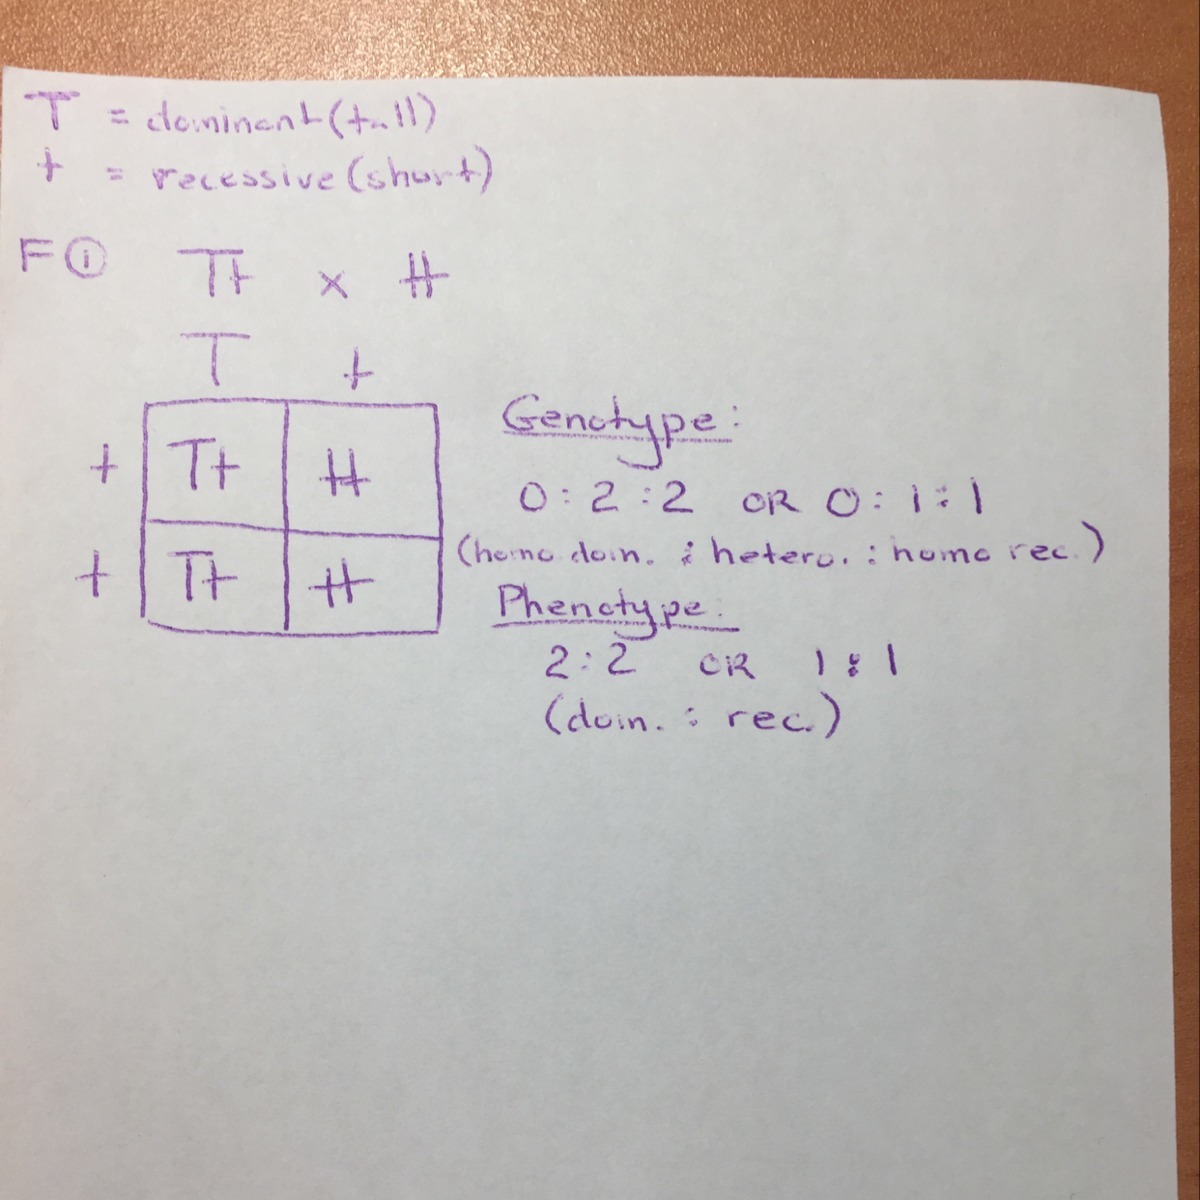 T = dominant (tall)
t = recessive (short)
F ① Tt x tt
T t
t Tt tt
t Tt tt
Genotype:
0 : 2 : 2 OR 0 : 1 : 1
(homo dom. : hetero. : homo rec.)
Phenotype:
2 : 2 OR 1 : 1
(dom. : rec.)